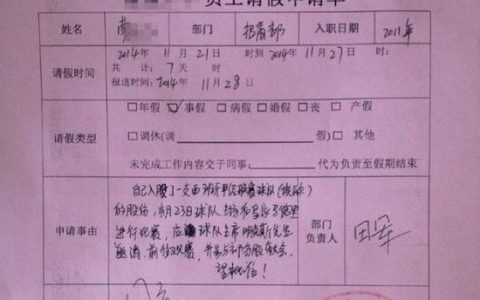 员工请假申请单
姓名 部门 招商部 入职日期 2011年
请假时间 2014年 11月21日 时到 2014年11月27日 时
共 计: 7天 时
报道时间: 2014年11月28日
请假类型 □年假 ☑事假 □病假 □婚假 □丧 □产假
□调休(满 假) □其他
未完成工作内容交于同事: 代为负责至假期结束
申请事由 自己入股了一支西班牙 联赛球队
的股份, 月23日球队
进行比赛, 应 球队主席 先生
邀请, 前往观赛, 并参与 股东大会,
望批准!
部门
负责人 田军